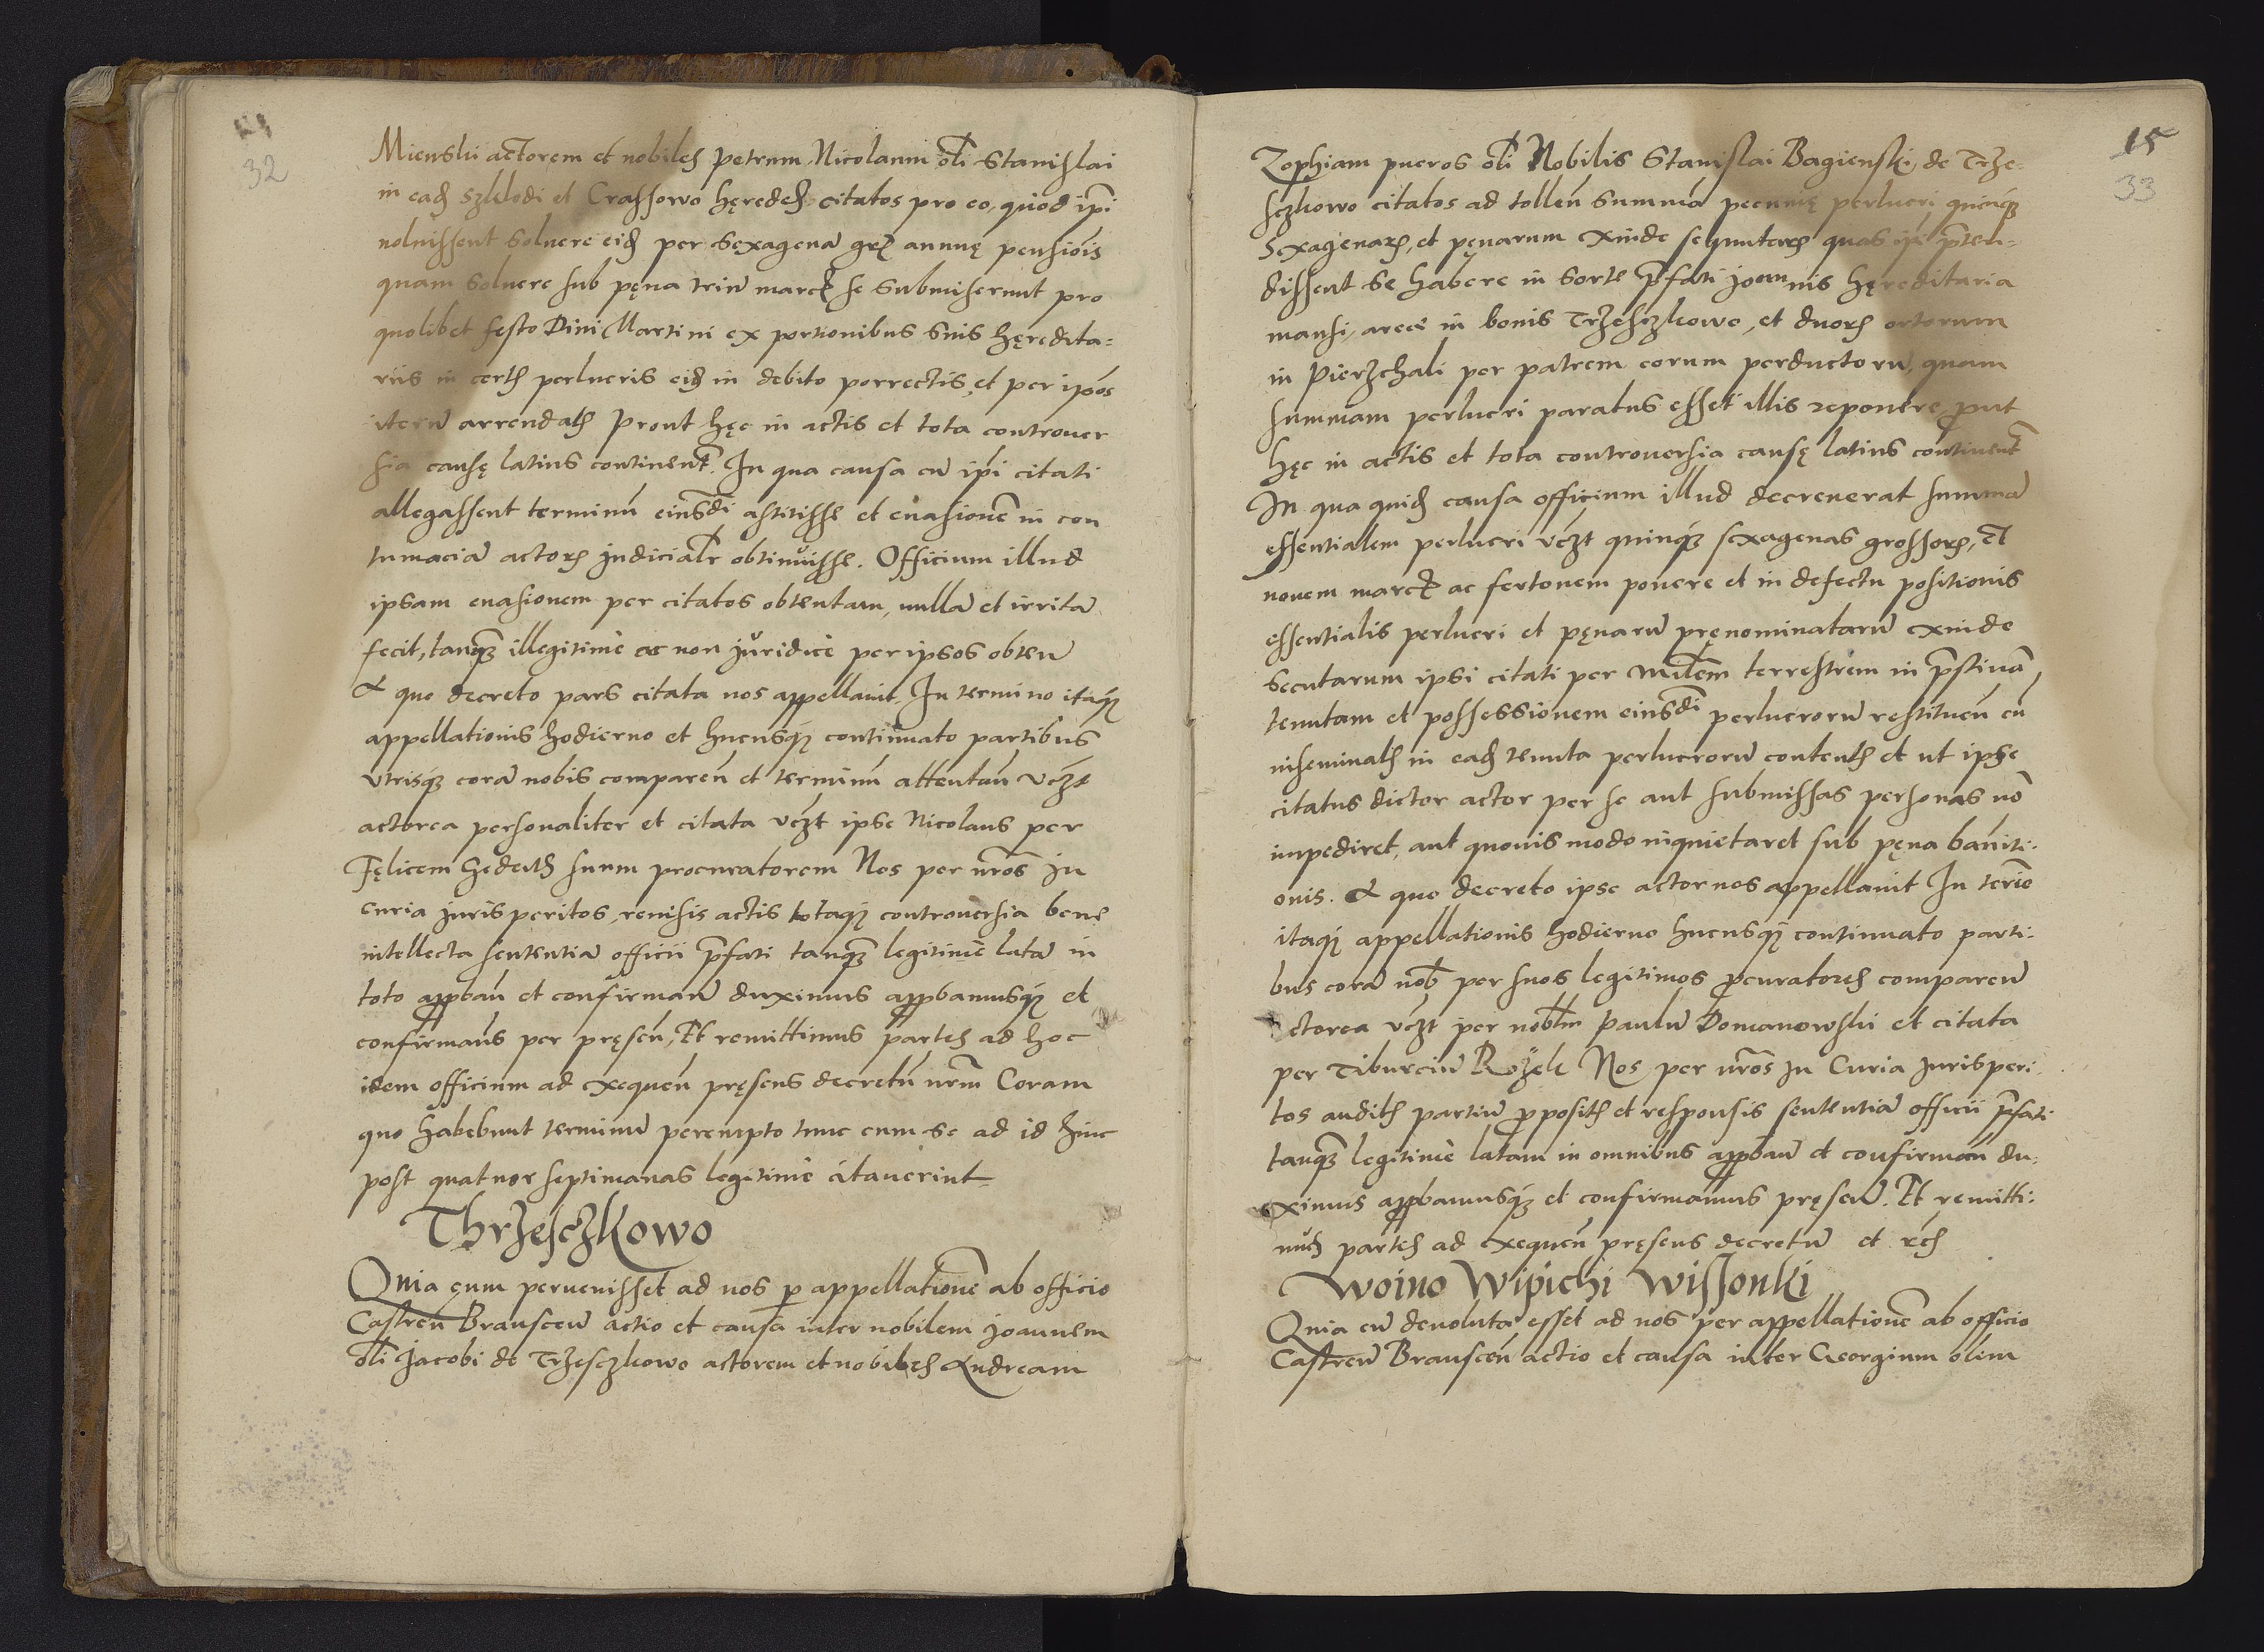 32
Mienski actorem et nobiles Petrum, Nicolaum oli Stanislai
in ead Szklodi et Crassowo hęredes citatos pro eo, quod ipi
noluissent soluere eid per sexagena gr annuę pensiois
quam soluere sub pęna triu marc se submiserunt pro
quolibet festo Diui Martini ex portionibus suis hęredita=
riis in certis perlucris eid in debito porrectis, et per ipos
iteru arrendatis Prout hęc in actis et tota controuer
sia causę latius continent. In qua causa cu ipi citati
allegassent terminu eiusdi astitisse et euasione in con
tumacia actoris Judicialr obtinuisse. Officium illud
ipsam euasionem per citatos obtentam, nulla et irrita
fecit, tanq illegitime ac non Juridice per ipsos obten
A quo decreto pars citata nos appellauit. In termino itaq
appellationis hodierno et hucusq continuato partibus
vtrisq cora nobis comparen et terminu attentan vczt
actorea personaliter et citata vczt ipse Nicolaus per
Fęlicem suum procuratorem Nos per nros In
curia Jurisperitos, reuisis actis totaq controuersia bene
intellecta sententia officii pfati tanq legitime lata in
toto appban et confirman duximus appbamusq et
confirmaus per pręsen, Et remittimus partes ad hoc
idem officium ad exequen pręsens decretu nrm Coram
quo habebunt terminu perempto tunc cum se ad id hinc
post quatuor septimanas legitime citauerint
Thrzesczkowo
Quia cum peruenisset ad nos p appellatione ab officio
Castren Branscen actio et causa inter nobilem Joannem
oli Jacobi de Trzesczkowo actorem et nobiles Andream
15
33
Zophiam pueros oli Nobilis Stanislai Bagienski de Trze=
sczkowo citatos ad tollen summa pecunię perlucri quinq
Sexagenar, et pęnarum exinde sequutar quas ipi pten=
dissent se habere in sorte pfati Joannis hęreditaria
mansi, areę in bonis Trzesczkowo, et duor ortorum
in Pierzchali per patrem eorum perductoru, quam
summam perlucri paratus esset illis reponere prout
hęc in actis et tota controuersia causę latius continent
In qua quid causa officium illud decreuerat summa
essentialem perlucri vczt quinq sexagenas grossor, et
nouem marc ac fertonem ponere et in defectu positionis
essentialis perlucri et pęnaru pręnominataru exinde
secutarum ipsi citati per Milem terrestrem in pstina
tenutam et possessionem eiusdi perlucroru restituen cu
inseminatis in ead tenuta perlucroru contentis et ut ipse
citatus dictor actor per se aut submissas personas no
impediret, aut quouis modo inquietaret sub pęna baniti=
onis. A quo decreto ipse actor nos appellauit In termio
itaq appellationis hodierno hucusq continuato parti=
bus cora nob per suos legitimos pcuratores comparen
Actorea vczt per noblm Paulu Domanowski et citata
per Tiburciu Rozek Nos per nros In Curia Jurisperi
tos auditis partiu ppositis et responsis sententia officii pfati
tanq legitime latam in omnibus appban et confirman du=
ximus appbamusq et confirmamus pręsen. Et remitti=
mus partes ad exequen pręsens decretum et rcs
Woino Wipichi Wissonki
Quia cu deuoluta esset ad nos per appellatione ab officio
Castren Branscen actio et causa inter Georgium olim